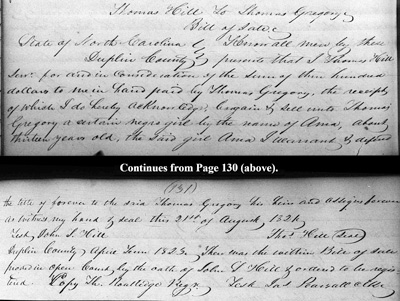 Thomas Hill to Thomas Gregory
Bill of Sale
State of North Carolina } Know all men by these
Duplin County } presents that I Thomas Hill
Senr. for and in Consideration of the sum of three hundred
dollars to me in hand paid by Thomas Gregory, the receipt
of which I do hereby acknowledge, Bargain & sell unto Thomas
Gregory a certain negro girl by the name of Ama, about
thirteen years old, the said girl Ama I warrant & defend
Continues from Page 130 (above).
(131)
the title of forever to the said Thomas Gregory his Heirs and Assigns forever
as witness my hand & seal this 21st of August, 1821.
Test John S. Hill Thos. Hill (Seal)
Duplin County April Term 1823. Then was the within Bill of Sale
proved in open Court by the oath of John S Hill & ordered to be regis
tered. Copy Thos. Routledge Regr. Test Jas Pearsall Clk.